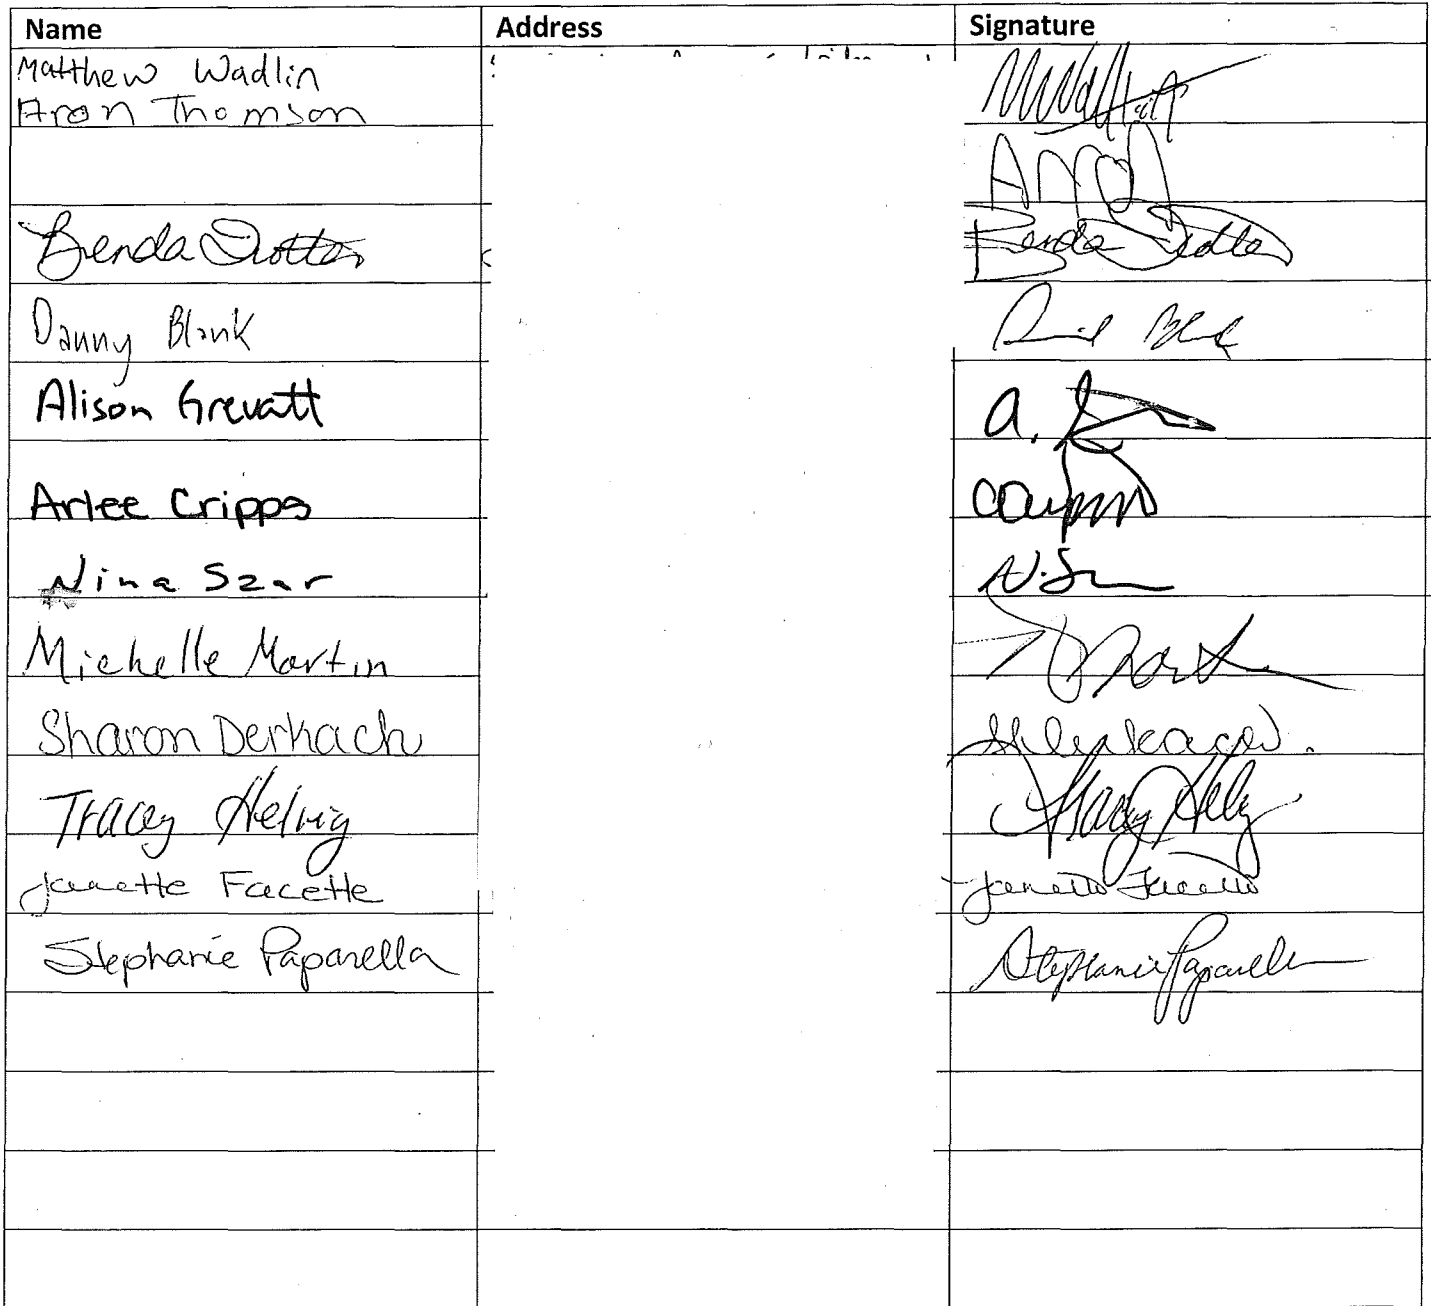 Name Address Signature
Matthew Wadlin
Aron Thomson
Aron
Brenda Trotter Brenda Trotter
Danny Blank
Alison Grevatt A.
Arlee Cripps
Nina Szar N. S
Michelle Martin
Sharon Derkach
Tracey Helvig Tracey Helvig
Janette Facette Janette Facette
Stephanie Paparella Stephanie Paparella